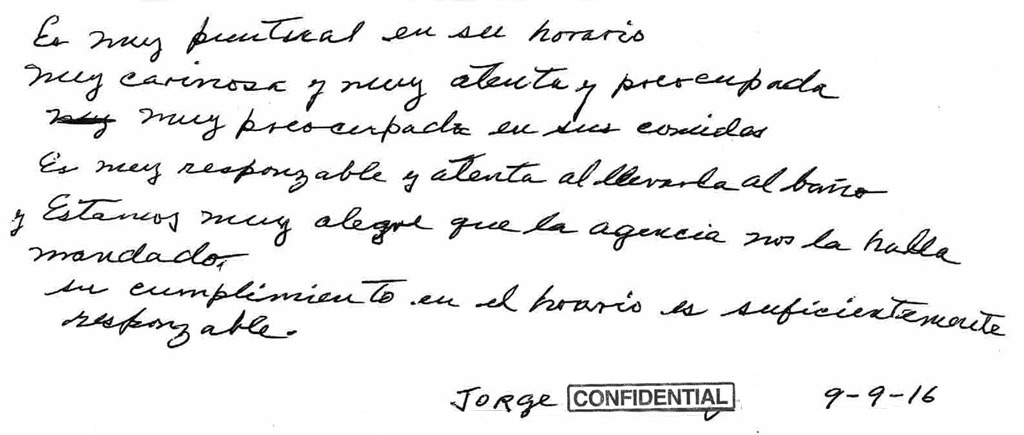 Es muy puntual en su horario
muy carinosa y muy atenta y preocupada
muy preocupada en sus comidas
Es muy responzable y atenta al llevarla al baño
y Estamos muy alegre que la agencia nos la halla
mandado,
su cumplimiento en el horario es suficientemente
responzable.
Jorge CONFIDENTIAL 9-9-16